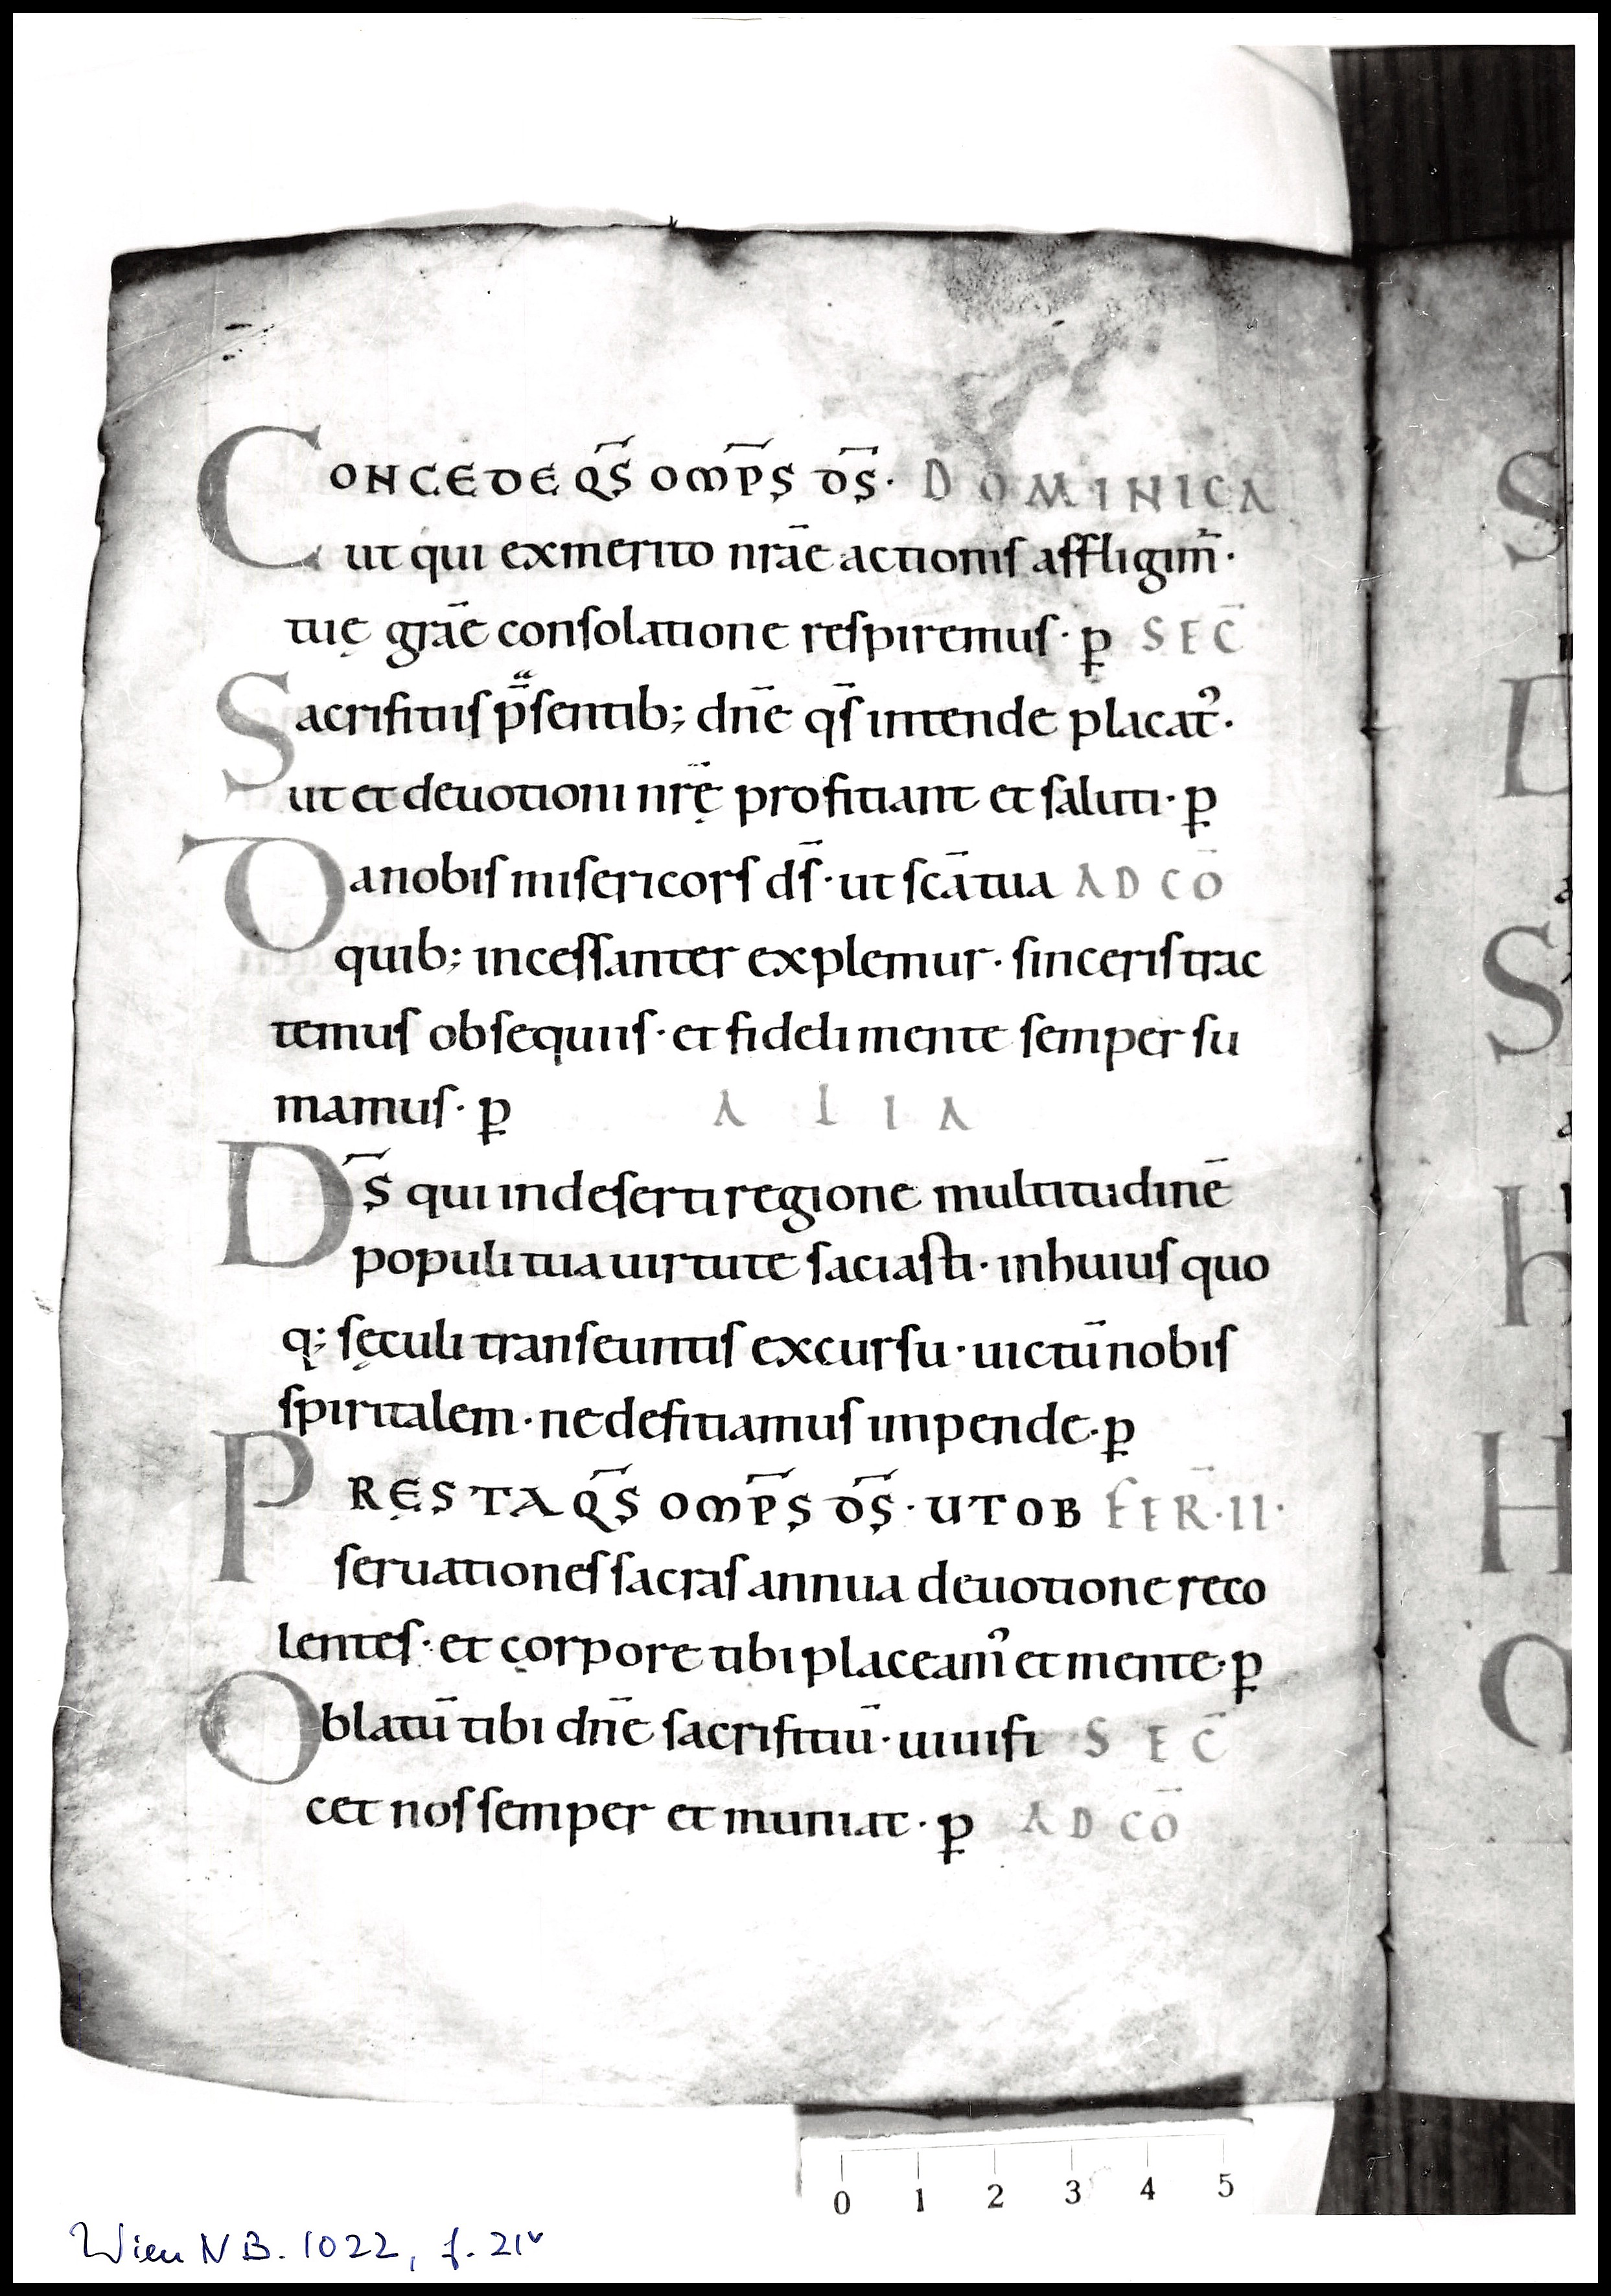 CONCEDE Q̅S̅ OM̅P̅S D̅S̅· DOMINICA
ut qui exmerito nr̄ae actionis affligim̄·
tuę grāe consolatione respiremus· ꝑ SEC̄
Sacrifitiis p̄sentib; dn̄e qs̄ intende placat᾽·
ut et deuotioni nr̄ę profitiant et saluti· ꝑ
Da nobis misericors ds̄· ut scātua AD CŌ
quib; incessanter explemur· sinceris trac
temus obsequiis· et fideli mente semper su
mamus· ꝑ ALIA
Ds̄ qui indeserti regione multitudinē
populi tua uirtute saciasti· inhuius quo
q; sęculi transeuntis excursu· uictū nobis
spiritalem· ne defitiamus impende· ꝑ
PRĘSTA Q̅S̅ OM̅P̅S D̅S̅· UT OB FER̄·II·
seruationes sacras annua deuotione reco
lentes· et corpore tibi placeam᾽ et mente· ꝑ
Oblatū tibi dn̄e sacrifitiū· uiuifi SEC̄
cet nos semper et muniat· ꝑ AD CŌ
S
D
S
h
H
0 1 2 3 4 5
Wien NB. 1022, f. 21v